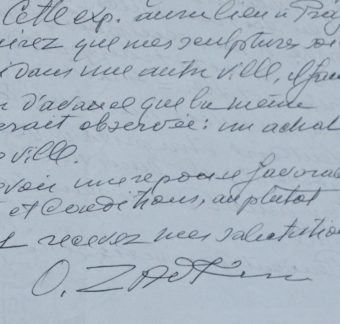 Cette exp. aura lieu à Prag
irez que mes sculptures soi
dans une autre ville, il fau
d'avance que la même
erait observée : un achat
ville.
evoir une reponse favora
et Conditions, au plutôt
recevez mes salutation
O. ZADKine